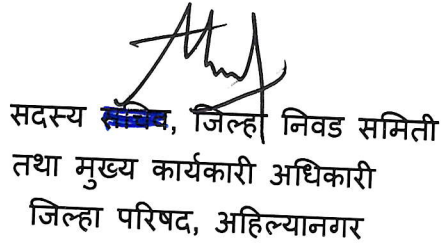 सदस्य सचिव, जिल्हा निवड समिती
तथा मुख्य कार्यकारी अधिकारी
जिल्हा परिषद, अहिल्यानगर